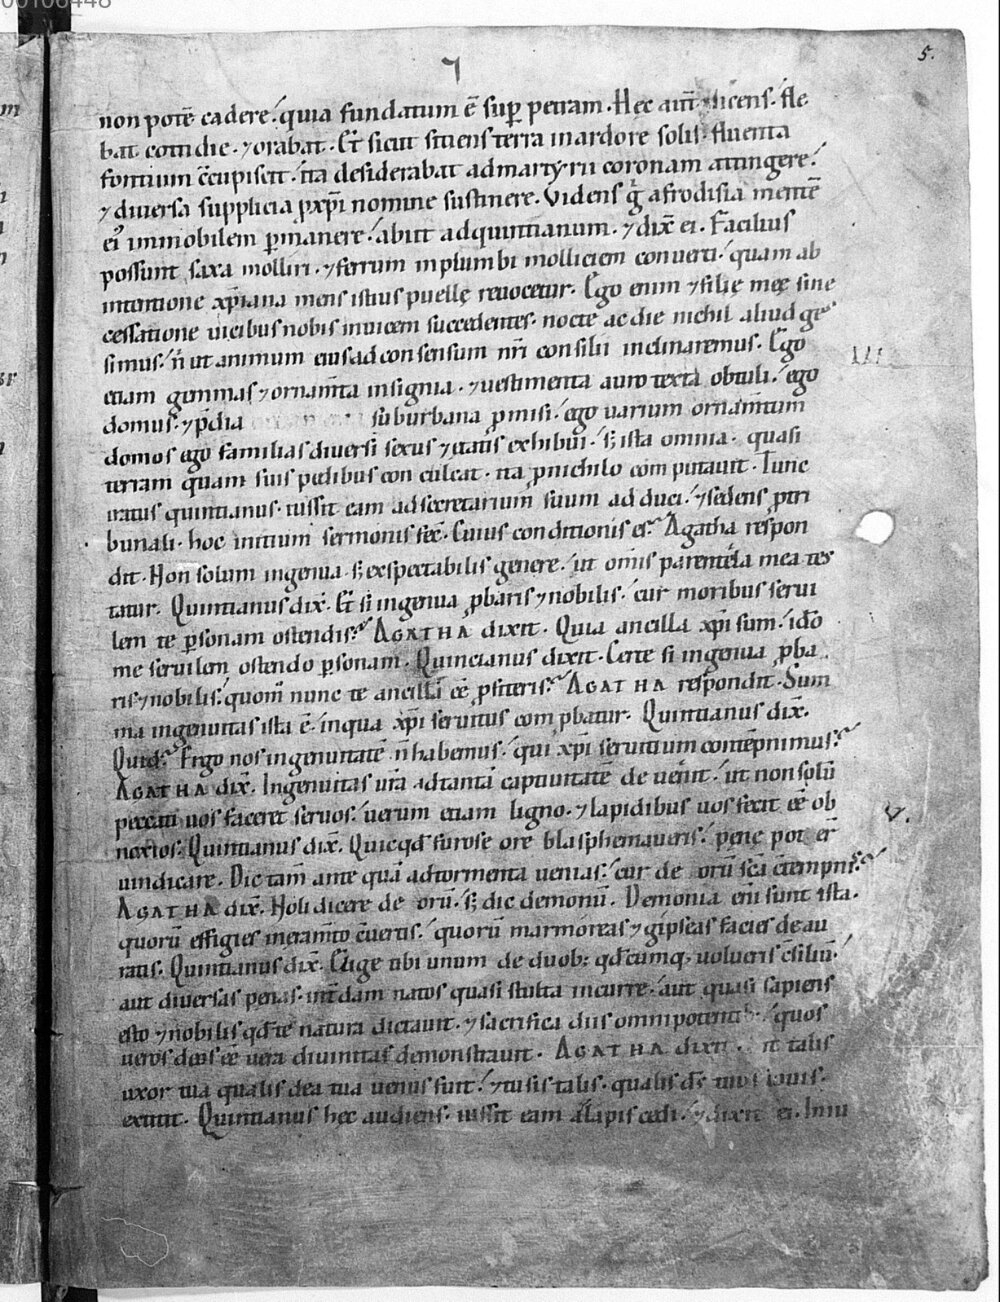 00106448
5.
non potẽ cadere. quia fundatum ẽ sup̱ petram. Hec aut̃ dicens. fle
bat cottidie. ⁊ orabat. Et sicut sitiens terra in ardore solis fluenta
fontium c̃cupiscit. ita desiderabat ad martyrii coronam attingere.
⁊ diversa supplicia p̱ xp̃i nomine sustinere. Videns g̃ afrodisia mentẽ
ei᷒ immobilem p̱manere. abiit ad quintianum. ⁊ dix̃ ei. Facilius
possunt saxa molliri. ⁊ ferrum in plumbi molliciem converti. quam ab
intentione xp̃iana mens istius puellę revocetur. Ego enim ⁊ filię meę sine
cessatione vicibus nobis invicem succedentes. nocte ac die nichil aliud ge
simus. ñ ut animum eius ad consensum nr̃i consilii inclinaremus. Ego
etiam gemmas ⁊ ornam̃ta insignia. ⁊ vestimenta auro texta obtuli. ego
domus. ⁊ p̃dia suburbana p̱misi. ego varium ornam̃tum
domos ego familias diversi sexus ⁊ ętatis exhibui. s; ista omnia. quasi
terram quam suis pedibus conculcat. ita p̱ nichilo computavit. Tunc
iratus quintianus. iussit eam ad secretarium suum adduci. ⁊ sedens p̱ tri
bunali. hoc initium sermonis fec̃. Cuius conditionis es? Agatha respon
dit. Non solum ingenua. s; ex spectabilis genere. ut om̃is parentela mea tes
tatur. Quintianus dix̃. Et si ingenua p̱baris ⁊ nobilis. cur moribus servi
lem te p̱sonam ostendis? AGATHA dixit. Quia ancilla xp̃i sum. idõ
me servilem ostendo p̱sonam. Quincianus dixit. Certe si ingenua p̱ba
ris ⁊ nobilis. quom̃ nunc te ancillã ẽẽ p̱fiteris? AGATHA respondit. Sum
ma ingenuitas ista ẽ. in qua xp̃i servitus comp̱batur. Quintianus dix̃.
Quid? Ergo nos ingenuitatẽ ñ habemus. qui xp̃i servitium contẽpnimus?
AGATHA dix̃. Ingenuitas vr̃a ad tantã captivitatẽ devenit. ut non solũ
peccati vos faceret servos. verum etiam ligno. ⁊ lapidibus vos fecit ẽẽ ob
noxios. Quintianus dix̃. Quicq̃d furose ore blasphemaveris. penę pot er̃
vindicare. Dic tam̃ ante quã ad tormenta venias. cur deorũ sc̃a c̃tempnis?
AGATHA dix̃. Noli dicere deorũ. s; dic demonũ. Demonia eni sunt ista.
quorũ effigies in eram̃to c̃vertis. quorũ marmoreas ⁊ gipseas facies deau
ratis. Quintianus dix̃. Elige tibi unum de duob; q̃dcumq; volueris c̃siliũ.
aut diversas penas. int̃ damnatos quasi stulta incurre. aut quasi sapiens
esto ⁊ nobilis q̃d te natura dictavit. ⁊ sacrifica diis omnipotentib;. quos
veros deos ẽẽ vera divinitas demonstravit. AGATHA dixit. talis
uxor tua qualis dea tua venus fuit. ⁊ tu sis talis. qualis d̃s tuus iovis.
extitit. Quintianus hec audiens. iussit eam alapis cedi. ⁊ dixit ei. Iniu
III
V.